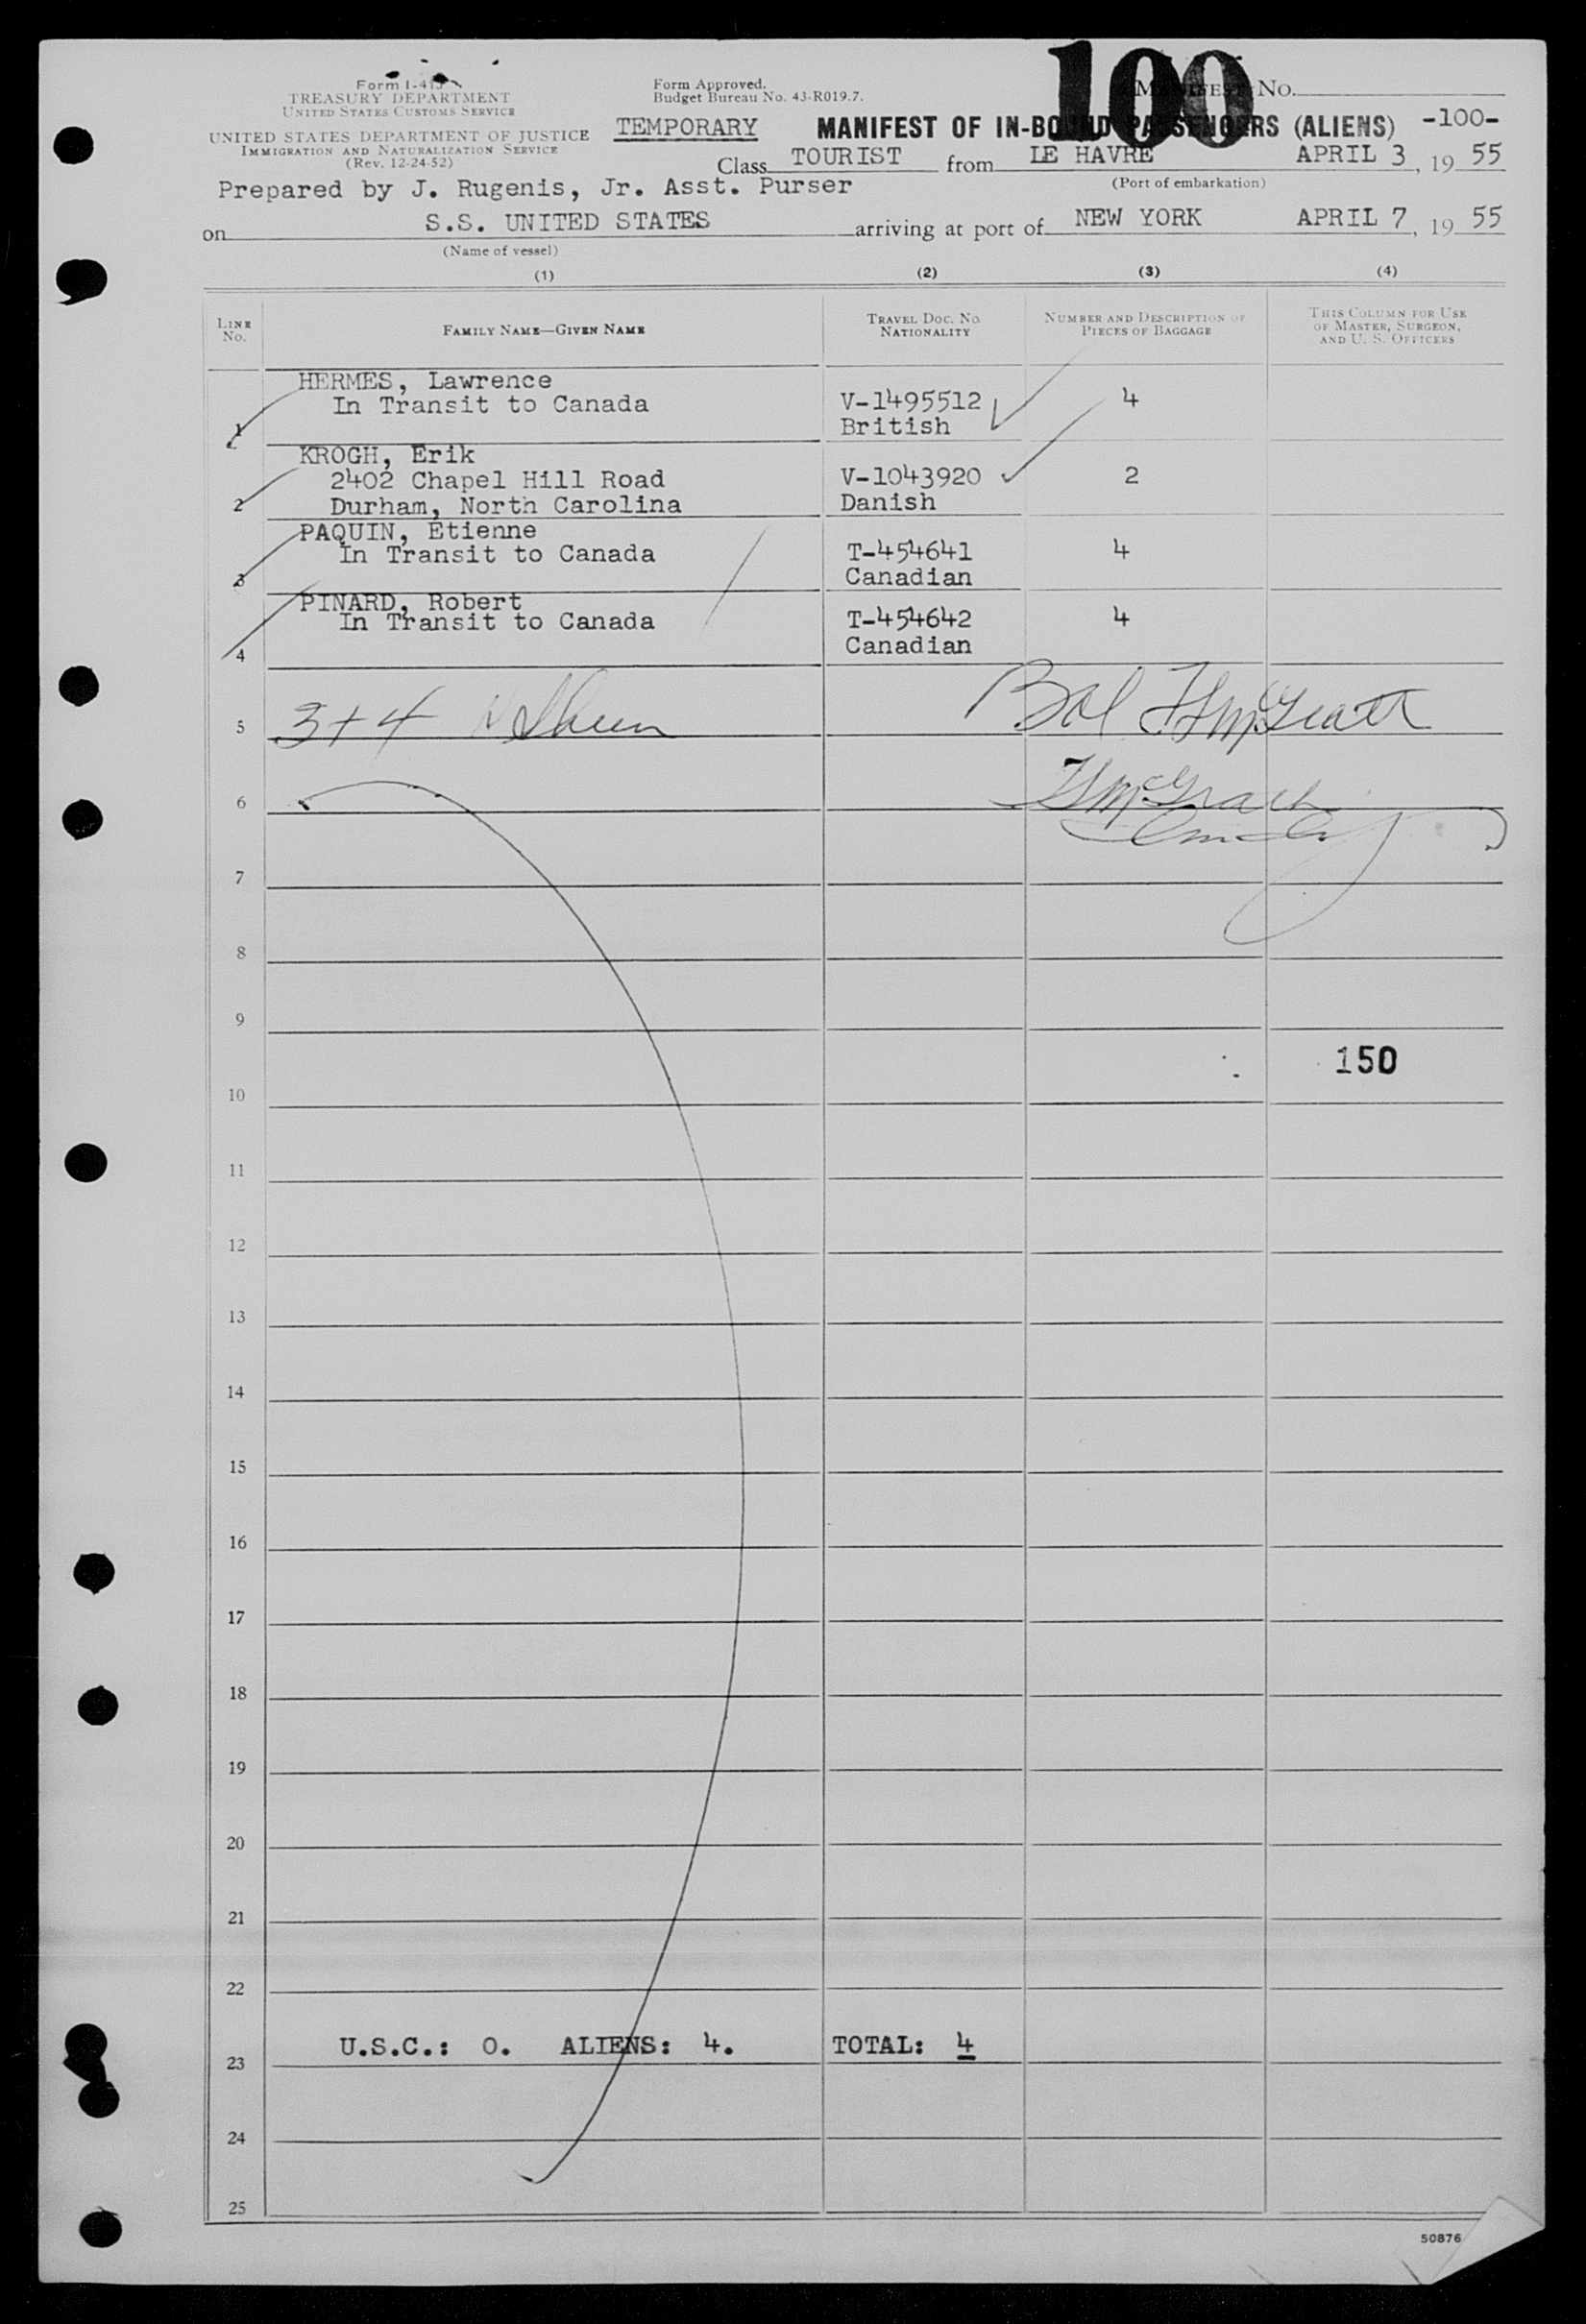 Form I-415
TREASURY DEPARTMENT
UNITED STATES CUSTOMS SERVICE
UNITED STATES DEPARTMENT OF JUSTICE
IMMIGRATION AND NATURALIZATION SERVICE
(Rev. 12-24-52)
Form Approved.
Budget Bureau No. 43-R019.7.
100
MANIFEST No.
TEMPORARY MANIFEST OF IN-BOUND PASSENGERS (ALIENS) -100-
Class TOURIST from LE HAVRE APRIL 3, 19 55
(Port of embarkation)
Prepared by J. Rugenis, Jr. Asst. Purser
on S.S. UNITED STATES arriving at port of NEW YORK APRIL 7, 19 55
(Name of vessel)
(1) (2) (3) (4)
LINE No. FAMILY NAME—GIVEN NAME TRAVEL DOC. NO. NATIONALITY NUMBER AND DESCRIPTION OF PIECES OF BAGGAGE THIS COLUMN FOR USE OF MASTER, SURGEON, AND U. S. OFFICERS
HERMES, Lawrence
In Transit to Canada V-1495512 4
1 British
KROGH, Erik
2402 Chapel Hill Road V-1043920 2
2 Durham, North Carolina Danish
PAQUIN, Etienne
In Transit to Canada T-454641 4
3 Canadian
PINARD, Robert
In Transit to Canada T-454642 4
4 Canadian
5 3+4 Bal McGrath
6 McGrath
7
8
9
150
10
11
12
13
14
15
16
17
18
19
20
21
22
U.S.C.: 0. ALIENS: 4. TOTAL: 4
23
24
25
50876